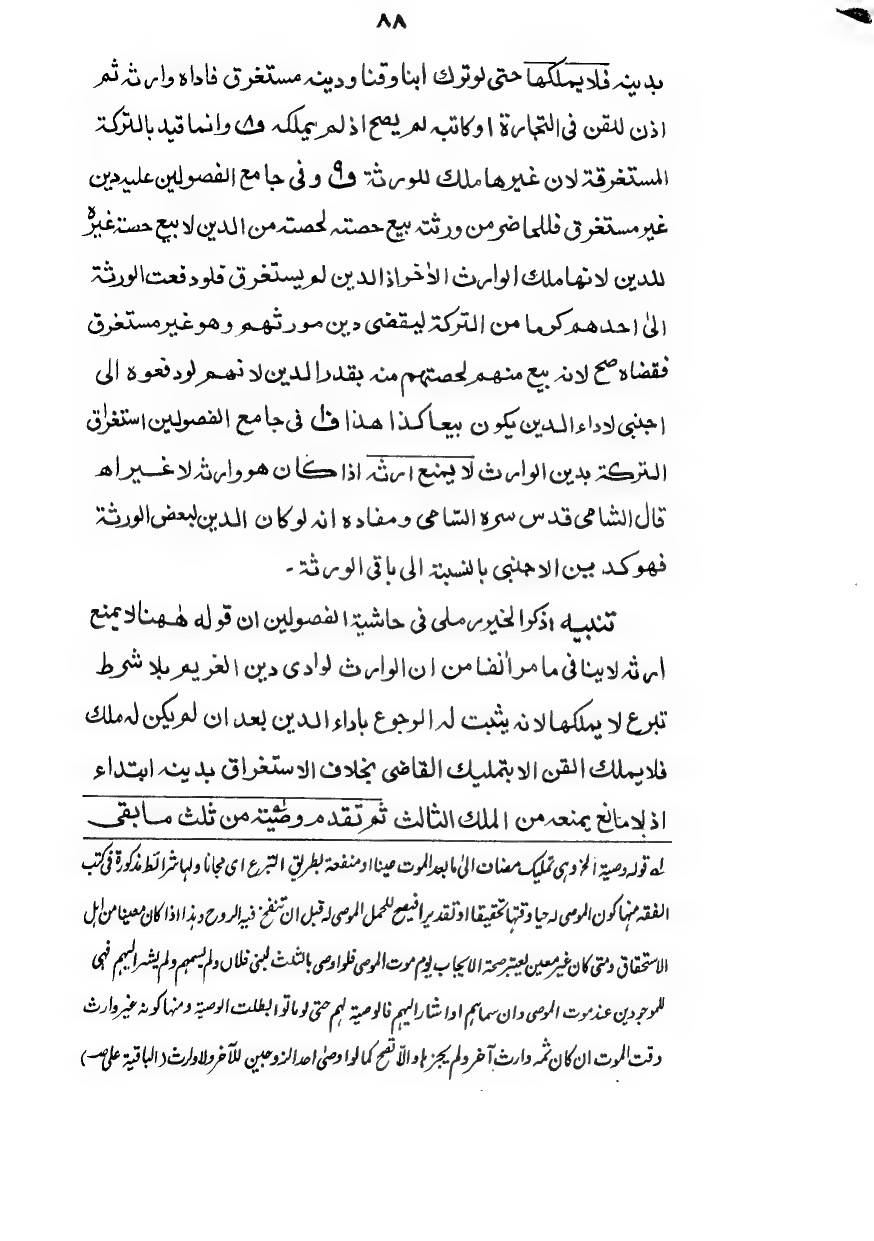 ٨٨
بدينه فلا يملكها حتى لو ترك ابنا وقنا ودينه مستغرق فاداه وارثه ثم
اذن للقن فى التجارة او كاتبه لم يصح اذ لم يملكه ف٨ وانما قيد بالتركة
المستغرقة لان غيرها ملك للورثة ف٩ وفى جامع الفصولين عليه دين
غير مستغرق فللحاضر من ورثته بيع حصته لحصته من الدين لا بيع حصة غيره
للدين لانها ملك الوارث الاٰخر اذ الدين لم يستغرق فلو دفعت الورثة
الىٰ احدهم كرما من التركة ليقضى دين مورثهم وهو غير مستغرق
فقضاه صح لانه بيع منهم لحصتهم منه بقدر الدين لانهم لو دفعوه الى
اجنبى لاداء الدين يكون بيعا كذا هذا ف١٠ فى جامع الفصولين استغراق
التركة بدين الوارث لا يمنع ارثه اذا كان هو وارثه لا غير اه
قال الشامى قدس سره السّامى ومفاده انه لو كان الدين لبعض الورثة
فهو كدين الاجنبى بالنسبة الى باقى الورثة۔
تنبيه اذكر الخير رملى فى حاشية الفصولين ان قوله هٰهنا لا يمنع
ارثه لا ينافى ما مر اٰنفا من ان الوارث لو ادى دين الغريم بلا شرط
تبرع لا يملكها لانه يثبت له الرجوع باداء الدين بعد ان لم يكن له ملك
فلا يملك القن الا بتمليك القاضى بخلاف الاستغراق بدينه ابتداء
اذ لا مانع يمنعه من الملك الثالث ثم تقدم وصيّته من ثلث ما بقى
له قوله وصية الخ وهى تمليك مضاف الىٰ ما بعد الموت عينا او منفعة بطريق التبرع اى مجانا ولها شرائط مذكورة فى كتب
الفقه منها كون الموصى له حيا وقتها تحقيقا او تقديرا فيصح للحمل الموصى له قبل ان تنفخ فيه الروح وهذا اذا كان معينا من اهل
الاستحقاق ومتى كان غير معين يعتبر صحة الايجاب يوم موت الموصى فلو اوصى بالثلث لبنى فلان ولم يسمهم ولم يشر اليهم فهى
للموجودين عند موت الموصى وان سماهم او اشار اليهم فالوصية لهم حتى لو ماتوا بطلت الوصية ومنها كونه غير وارث
وقت الموت ان كان ثمه وارث آخر ولم يجزها والّا تصح كما لو اوصىٰ احد الزوجين للآخر ولا وارث (الباقية علىٰ صـ)